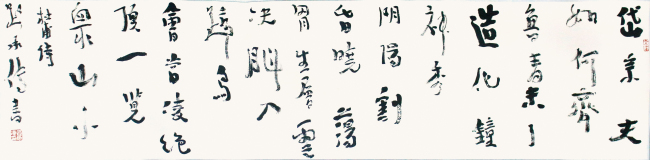 岱宗夫
如何齊
魯青未了
造化鐘
神秀
陰陽割
昏曉蕩
胸生層雲
決眥入
歸鳥
會當凌絕
頂一覽
眾山小
杜甫詩
書